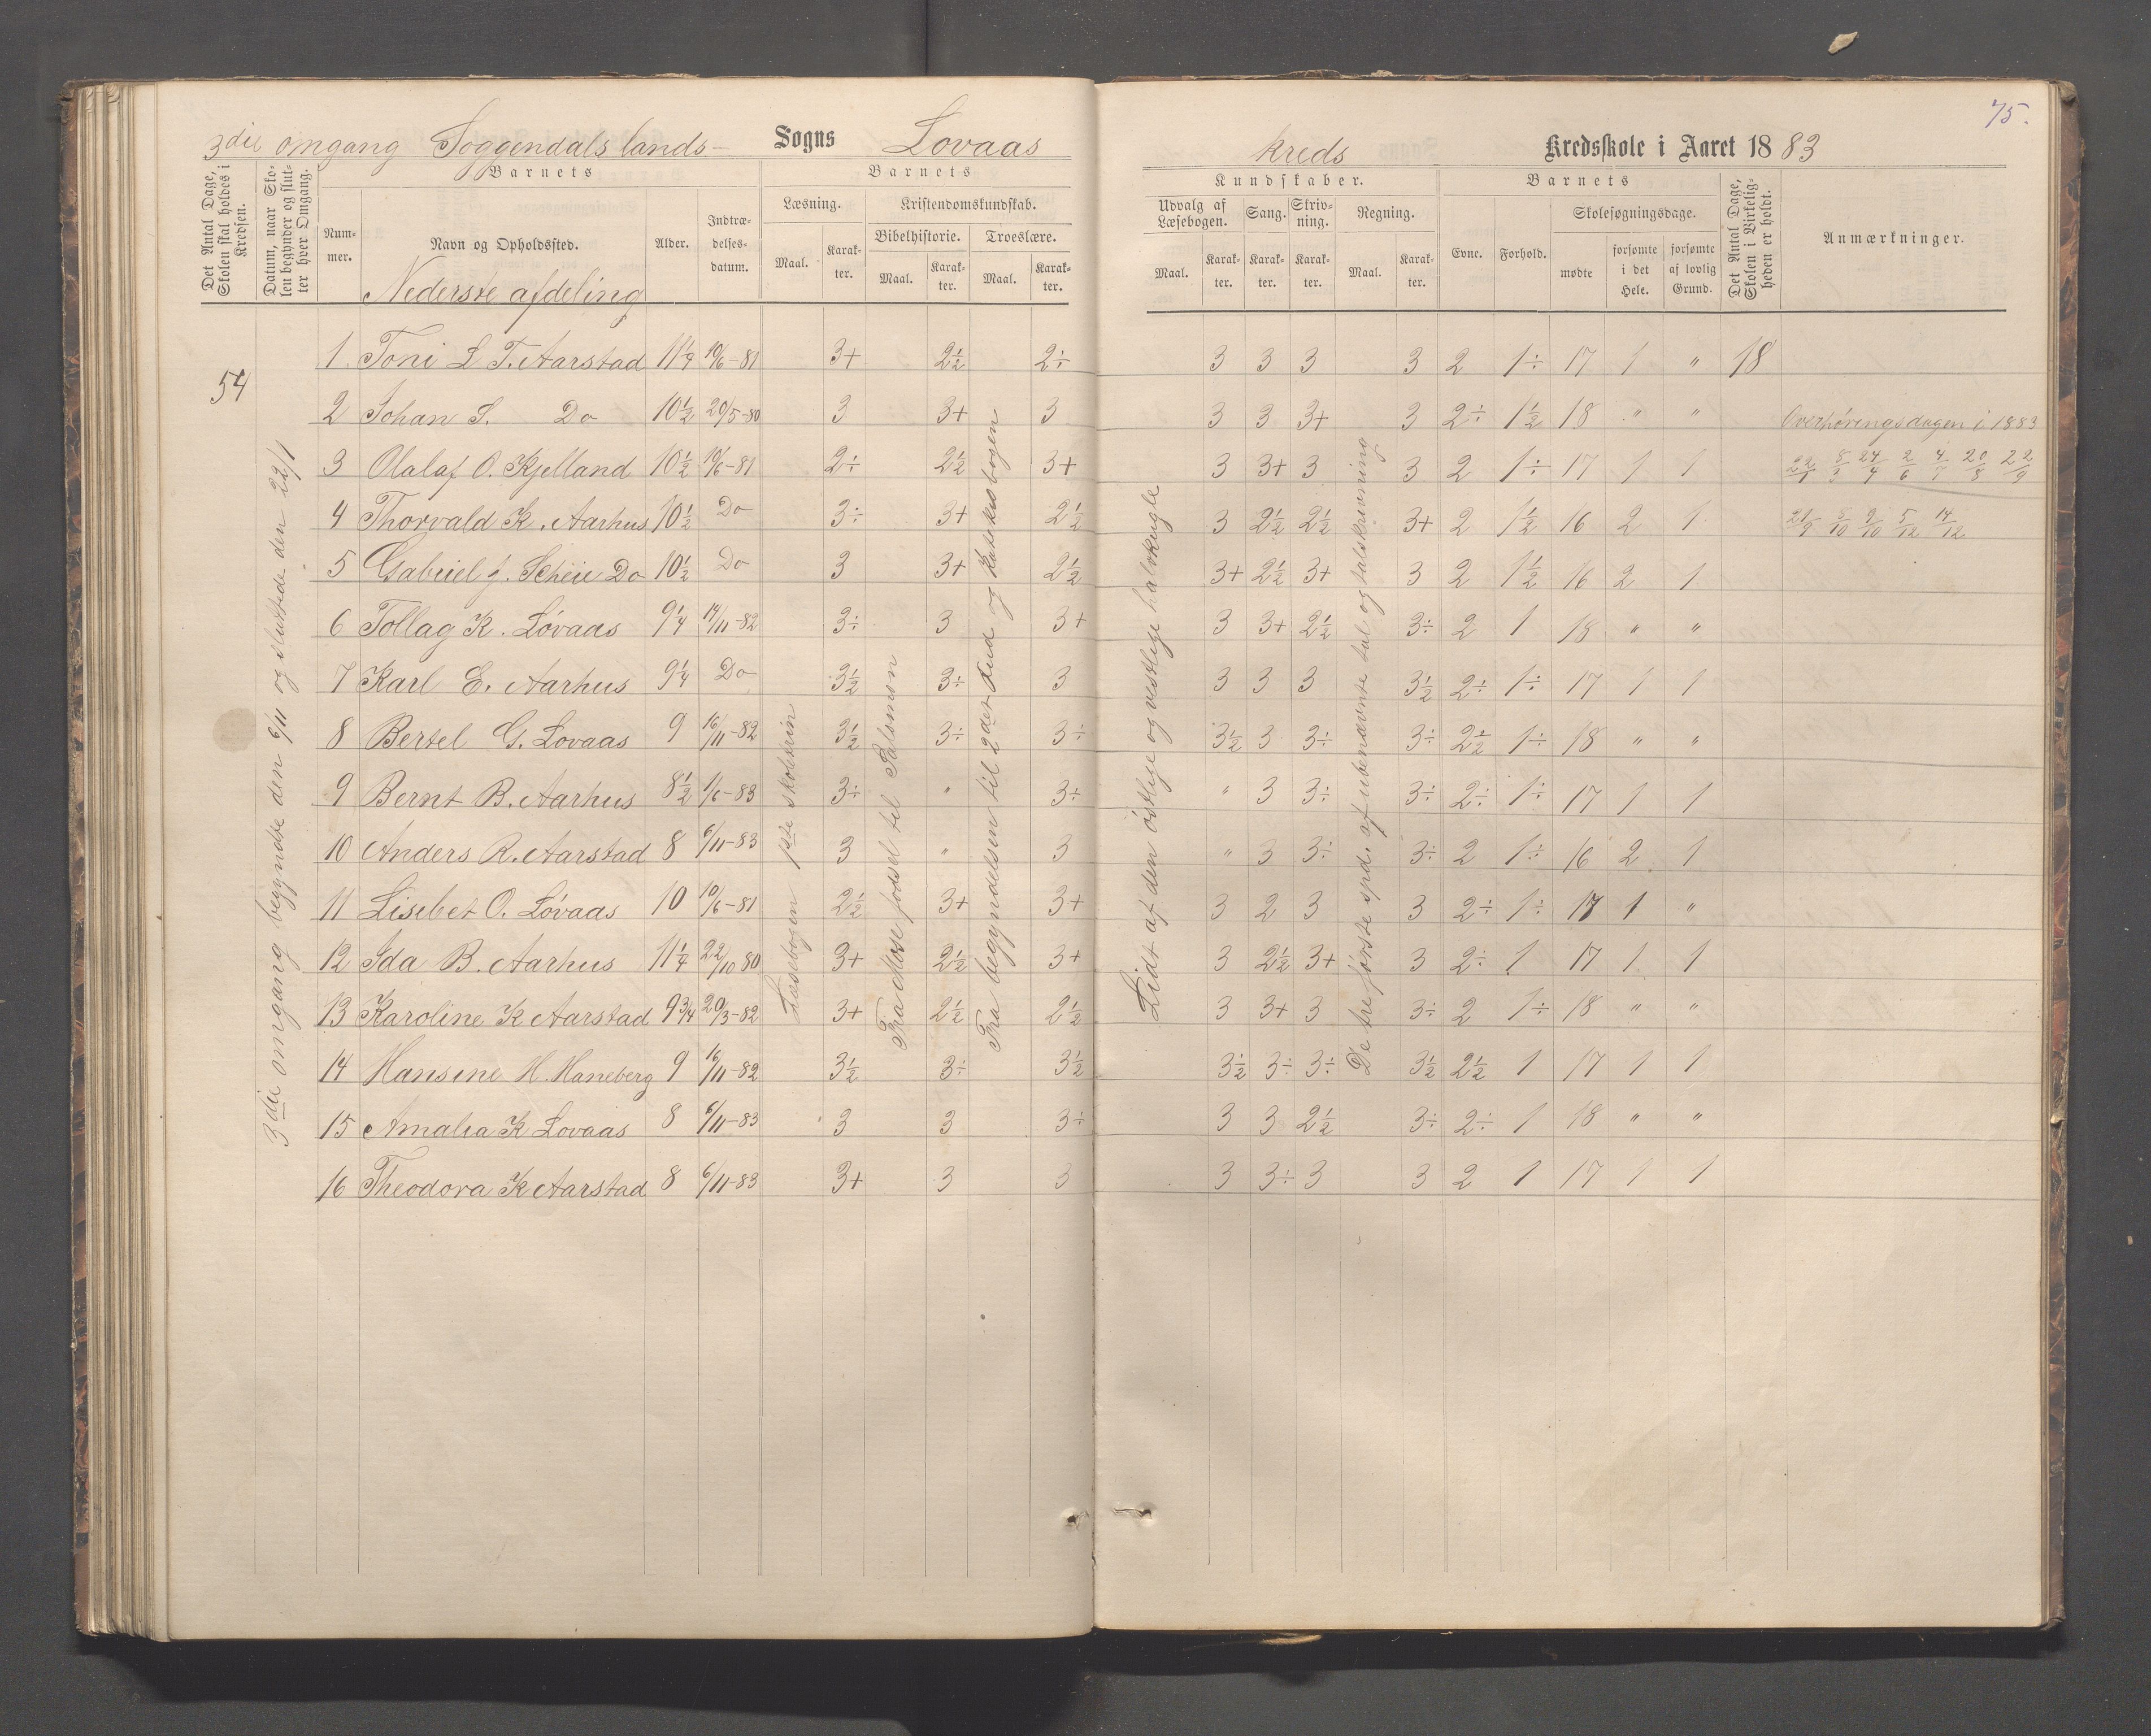 75.
3die omgang Soggendals lands- Sogns Lovaas kreds Kredsskole i Aaret 1883
Det Antal Dage, Skolen skal holdes i Kredsen.
Datum, naar Skolen begynder og slutter hver Omgang.
Barnets
Nummer.
Navn og Opholdssted.
Nederste afdeling
Alder.
Indtrædelsesdatum.
Barnets
Læsning.
Maal.
Karakter.
Kristendomskundskab.
Bibelhistorie.
Maal.
Karakter.
Troeslære.
Maal.
Karakter.
Kundskaber.
Udvalg af Læsebogen.
Maal.
Karakter.
Sang.
Karakter.
Skrivning.
Karakter.
Regning.
Maal.
Karakter.
Barnets
Evne.
Forhold.
Skolesøgningsdage.
mødte
forsømte i det Hele.
forsømte af lovlig Grund.
Det Antal Dage, Skolen i Virkeligheden er holdt.
Anmærkninger.
54
3die omgang begyndte den 6/11 og sluttede den 22/1
Læsebogen 1ste skoletrin
Fra Mose fødsel til Salomon
Fra begyndelsen til 2det bud og katekesbogen
Lidt af den østlige og vestlige halvkugle
De tre første spd. af ubenævnte tal og talskrivning
1 Toni L T. Aarstad 11 1/4 10/6-81 3+ 2 1/2 2÷ 3 3 3 3 2 1÷ 17 1 " 18
2 Johan S. Do 10 1/2 20/5-80 3 3+ 3 3 3 3+ 3 2÷ 1 1/2 18 " " Overhøringsdagen i 1883
3 Olalaf O. Kjelland 10 1/2 10/6-81 2÷ 2 1/2 3+ 3 3+ 3 3 2 1÷ 17 1 1 22/1 8/3 24/4 2/6 4/7 20/8 22/9
4 Thorvald K. Aarhus 10 1/2 Do 3÷ 3+ 2 1/2 3 2 1/2 2 1/2 3+ 2 1 1/2 16 2 1 21/9 8/10 9/10 5/12 14/12
5 Gabriel J. Scheie Do 10 1/2 Do 3 3+ 2 1/2 3+ 2 1/2 3+ 3 2 1 1/2 16 2 1
6 Tollag K. Lovaas 9 1/4 14/11-82 3÷ 3 3+ 3 3+ 2 1/2 3÷ 2 1 18 " "
7 Karl E. Aarhus 9 1/4 Do 3 1/2 3÷ 3 3 3 3 3 1/2 2÷ 1÷ 17 1 1
8 Bertel G. Lovaas 9 16/11-82 3 1/2 3÷ 3÷ 3 1/2 3 3÷ 3÷ 2 1/2 1÷ 18 " "
9 Bernt B. Aarhus 8 1/2 1/6-83 3÷ " 3÷ " 3 3÷ 3÷ 2÷ 1÷ 17 1 1
10 Anders R. Aarstad 8 6/11-83 3 " 3 " 3 3÷ 3÷ 2 1÷ 16 2 1
11 Lisebet O. Lovaas 10 10/6-81 2 1/2 3+ 3+ 3 2 3 3 2÷ 1÷ 17 1 "
12 Ida B. Aarhus 11 1/4 22/10 80 3+ 2 1/2 3+ 3 2 1/2 3+ 3 2÷ 1 17 1 1
13 Karoline K Aarstad 9 3/4 20/3-82 3+ 2 1/2 2 1/2 3 3+ 3 3÷ 2 1÷ 18 " "
14 Hansine H. Haneberg 9 16/11-82 3 1/2 3÷ 3 1/2 3 1/2 3÷ 3÷ 3 1/2 2 1/2 1 17 1 1
15 Amalia K Lovaas 8 6/11-83 3 3 3÷ 3 3 2 1/2 3÷ 2÷ 1 18 " "
16 Theodora K Aarstad 8 6/11-83 3+ 3 3 3 3÷ 3 3 2 1 17 1 1